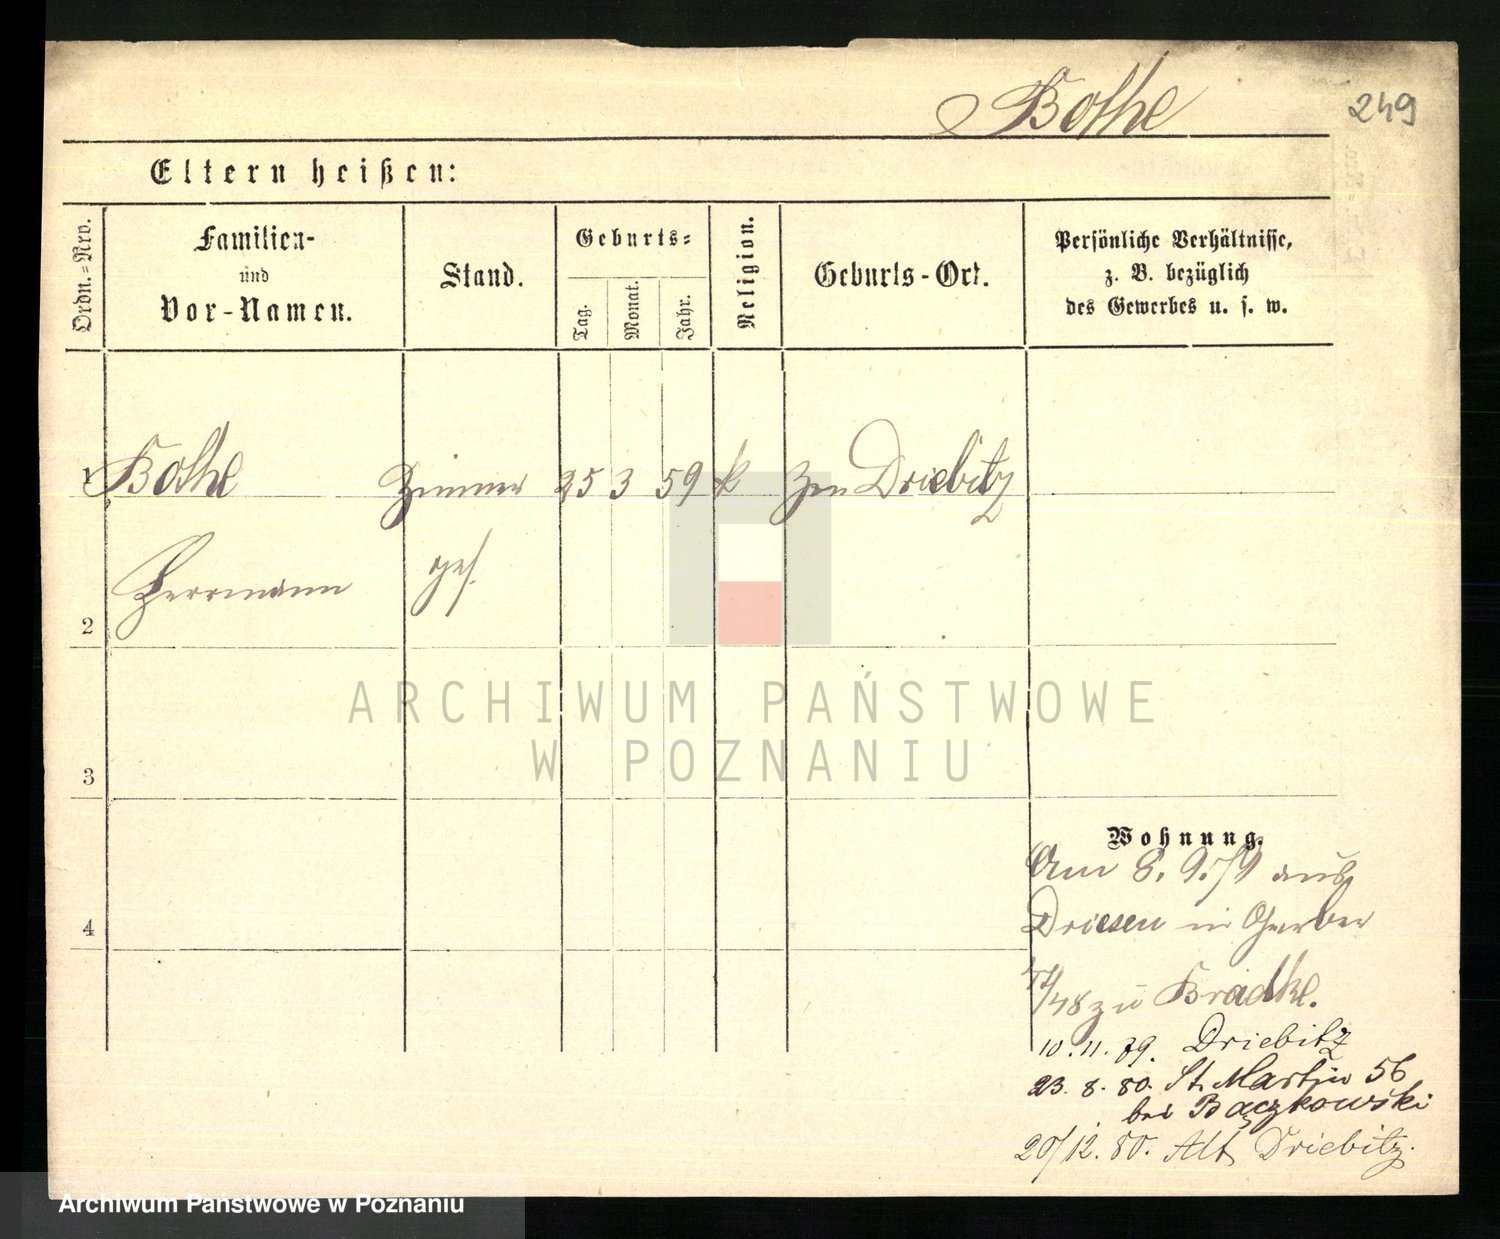 Bothe
249
Eltern heißen:
Ordn.=Nro.
Familien-
und
Vor-Namen.
Stand.
Geburts=
Tag.
Monat.
Jahr.
Religion.
Geburts-Ort.
Persönliche Verhältnisse,
z. B. bezüglich
des Gewerbes u. s. w.
1 Bothe Zimmer 25 3 59 k Driebitz
Herrmann ges.
2
ARCHIWUM PAŃSTWOWE
W POZNANIU
3
Wohnung.
Am 8. 9. 79 aus
4
Driesen in Gerber
48 zu Bradke.
10. 11. 79. Driebitz
23. 8. 80. St. Martin 56
bei Bączkowski
20/12. 80. Alt Driebitz.
Archiwum Państwowe w Poznaniu